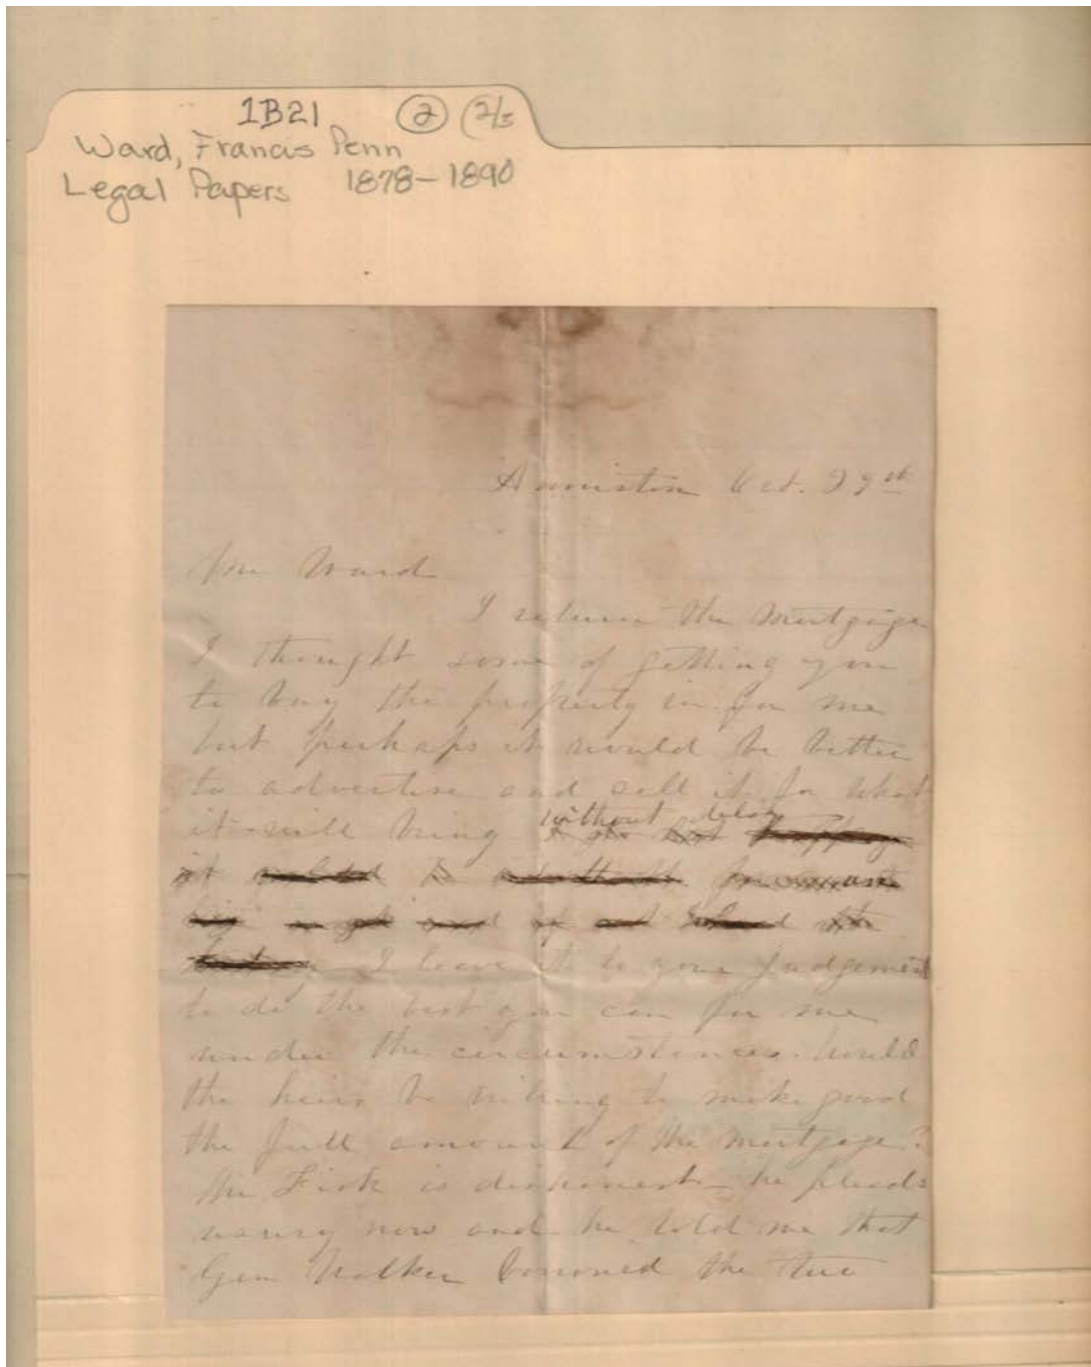 1B21 2 (2/5
Ward, Francis Penn
Legal Papers 1878-1890
Anniston Oct. 29th
Mr Ward
I return the Mortgage
I thought some of getting you
to buy the property in for me
but perhaps it would be better
to advertise and sell it for what
it will bring without delay
I leave it to your judgement
to do the best you can for me
under the circumstances. Would
the heirs be willing to make good
the full amount of the mortgage?
Mr Fisk is dishonest - he pleads
usury now and he told me that
Gen Walker borrowed the